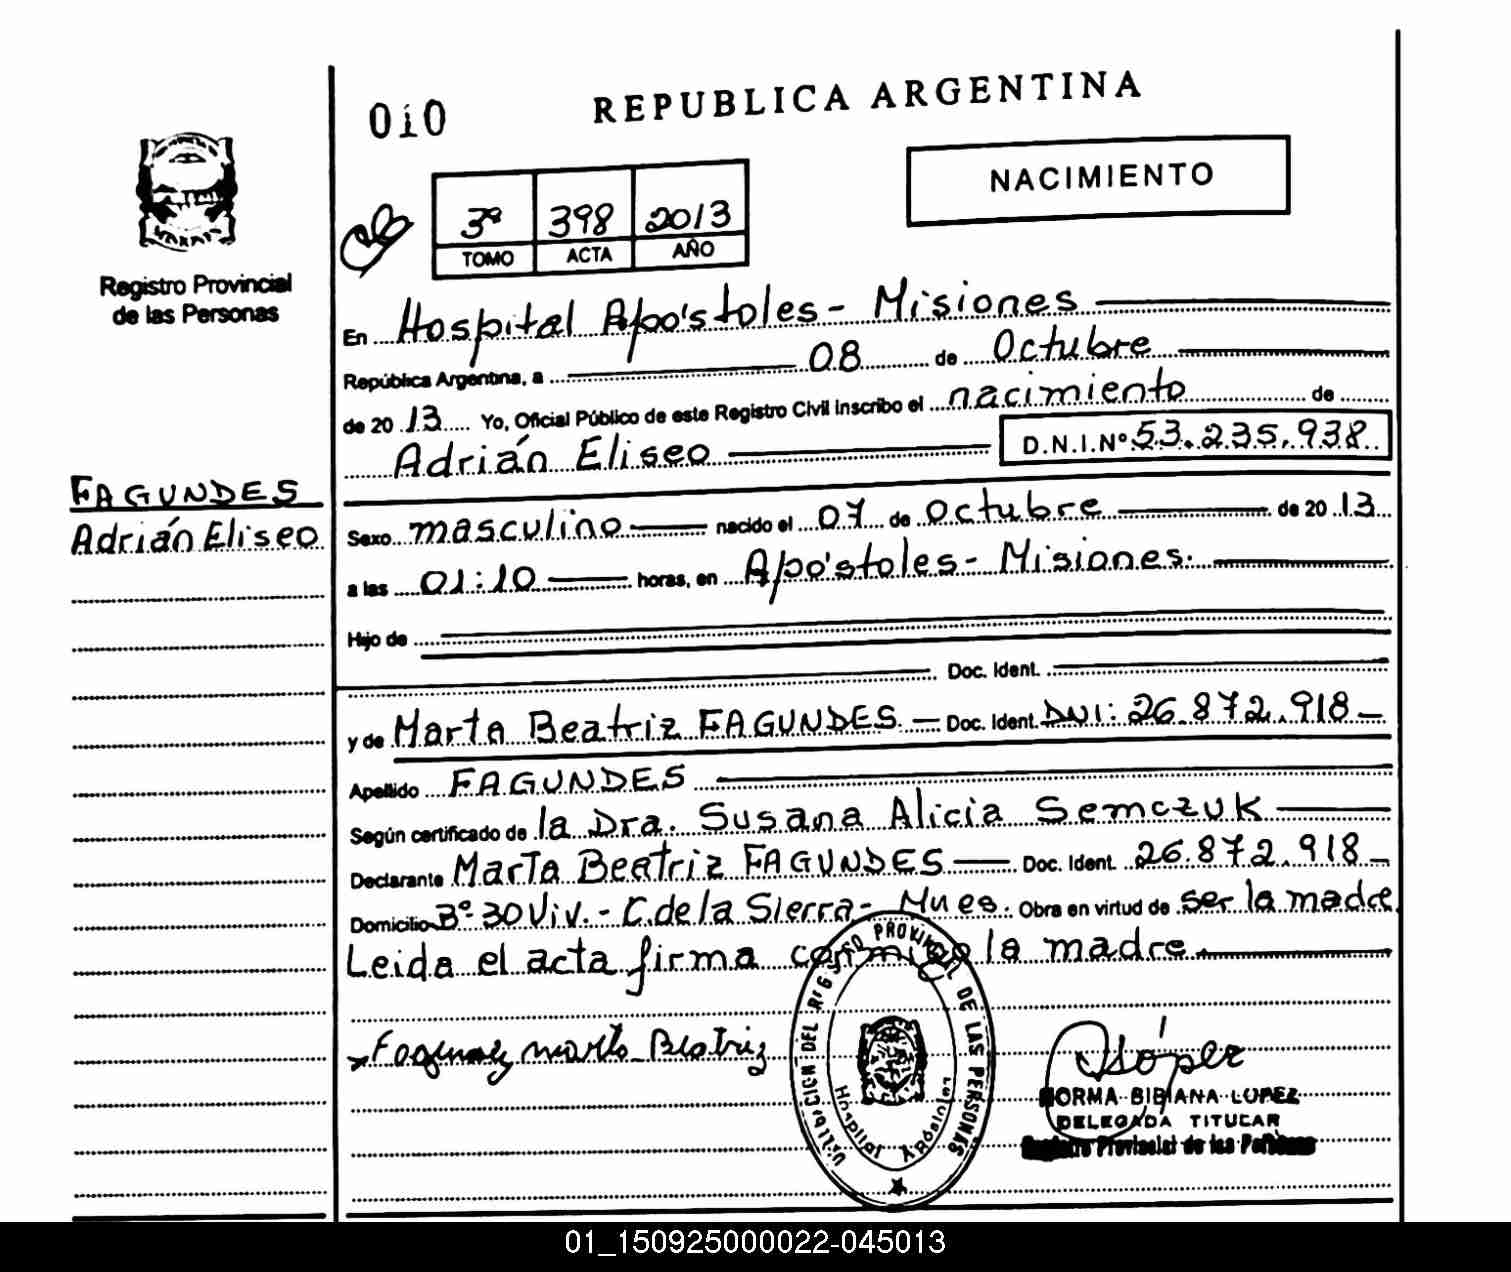 010
REPUBLICA ARGENTINA
NACIMIENTO
3º 398 2013
TOMO ACTA AÑO
Registro Provincial
de las Personas
En Hospital Apóstoles - Misiones
República Argentina, a 08 de Octubre
de 2013 Yo, Oficial Público de este Registro Civil inscribo el nacimiento de
Adrián Eliseo D.N.I.Nº 53.235.938
FAGUNDES
Adrián Eliseo
Sexo masculino nacido el 07 de Octubre de 2013
a las 01:10 horas, en Apóstoles - Misiones.
Hijo de
Doc. Ident.
y de Marta Beatriz FAGUNDES. Doc. Ident. DNI: 26.872.918
Apellido FAGUNDES
Según certificado de la Dra. Susana Alicia Semczuk
Declarante Marta Beatriz FAGUNDES Doc. Ident. 26.872.918
Domicilio Bº 30 Viv. - C. de la Sierra - Mnes. Obra en virtud de ser la madre
Leida el acta firma conmigo la madre.
Marta Beatriz
DEL REGISTRO PROVINCIAL DE LAS PERSONAS
Hospital Apóstoles
López
NORMA BIBIANA LOPEZ
DELEGADA TITULAR
Registro Provincial de las Personas
01_150925000022-045013